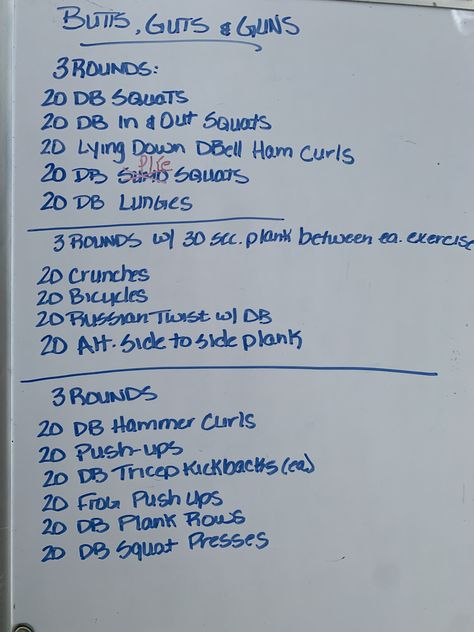 BUTTS, GUTS & GUNS
3 ROUNDS:
20 DB SQUATS
20 DB In & Out SQUATS
20 Lying Down DBell Ham Curls
20 DB Plie SQUATS
20 DB LUNGES
3 ROUNDS w/ 30 sec. plank between ea. exercise
20 Crunches
20 Bicycles
20 Russian Twist w/ DB
20 Alt. side to side plank
3 ROUNDS
20 DB Hammer Curls
20 Push-ups
20 DB Tricep Kickbacks (ea)
20 Frog Push Ups
20 DB Plank Rows
20 DB Squat Presses